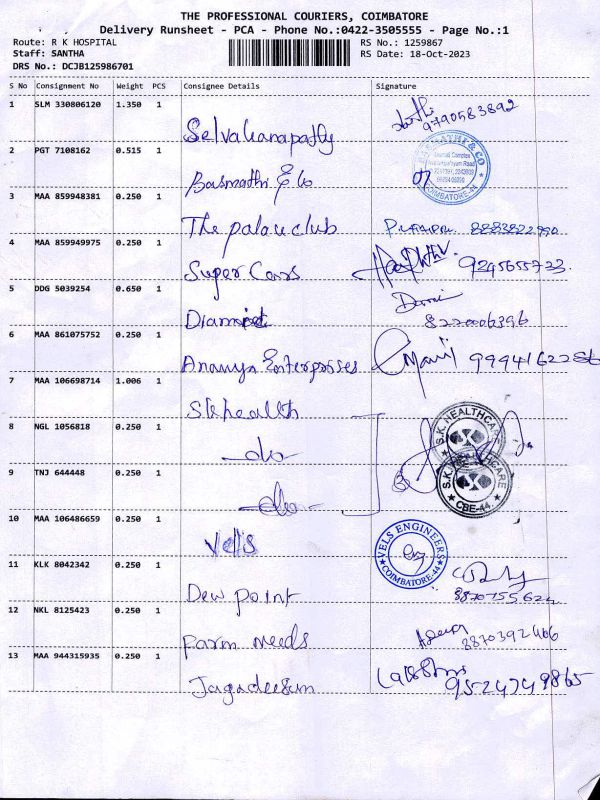 THE PROFESSIONAL COURIERS, COIMBATORE
Delivery Runsheet - PCA - Phone No.:0422-3505555 - Page No.:1
Route: R K HOSPITAL
RS No.: 1259867
Staff: SANTHA
RS Date: 18-Oct-2023
DRS No.: DCJB125986701
S No Consignment No Weight PCS Consignee Details Signature
1 SLM 330806120 1.350 1
Selvaganapathy 9790583892
2 PGT 7108162 0.515 1
Basmathi & Co
COIMBATORE-44
3 MAA 859948381 0.250 1
The palau club 8883822990
4 MAA 859949975 0.250 1
Super Cars 9245655733
5 DDG 5039254 0.650 1
Diamond 8220006396
6 MAA 861075752 0.250 1
Ananya Enterprises
7 MAA 106698714 1.006 1
Sk health
8 NGL 1056818 0.250 1
-do-
S.K. HEALTHCARE
9 TNJ 644448 0.250 1
-do-
S.K. HEALTHCARE
CBE-44
10 MAA 106486659 0.250 1
Vels
VELS ENGINEERS
COIMBATORE-44
11 KLK 8042342 0.250 1
Dew point
12 NKL 8125423 0.250 1
Farm needs
13 MAA 944315935 0.250 1
Jagadeesan 9524749865